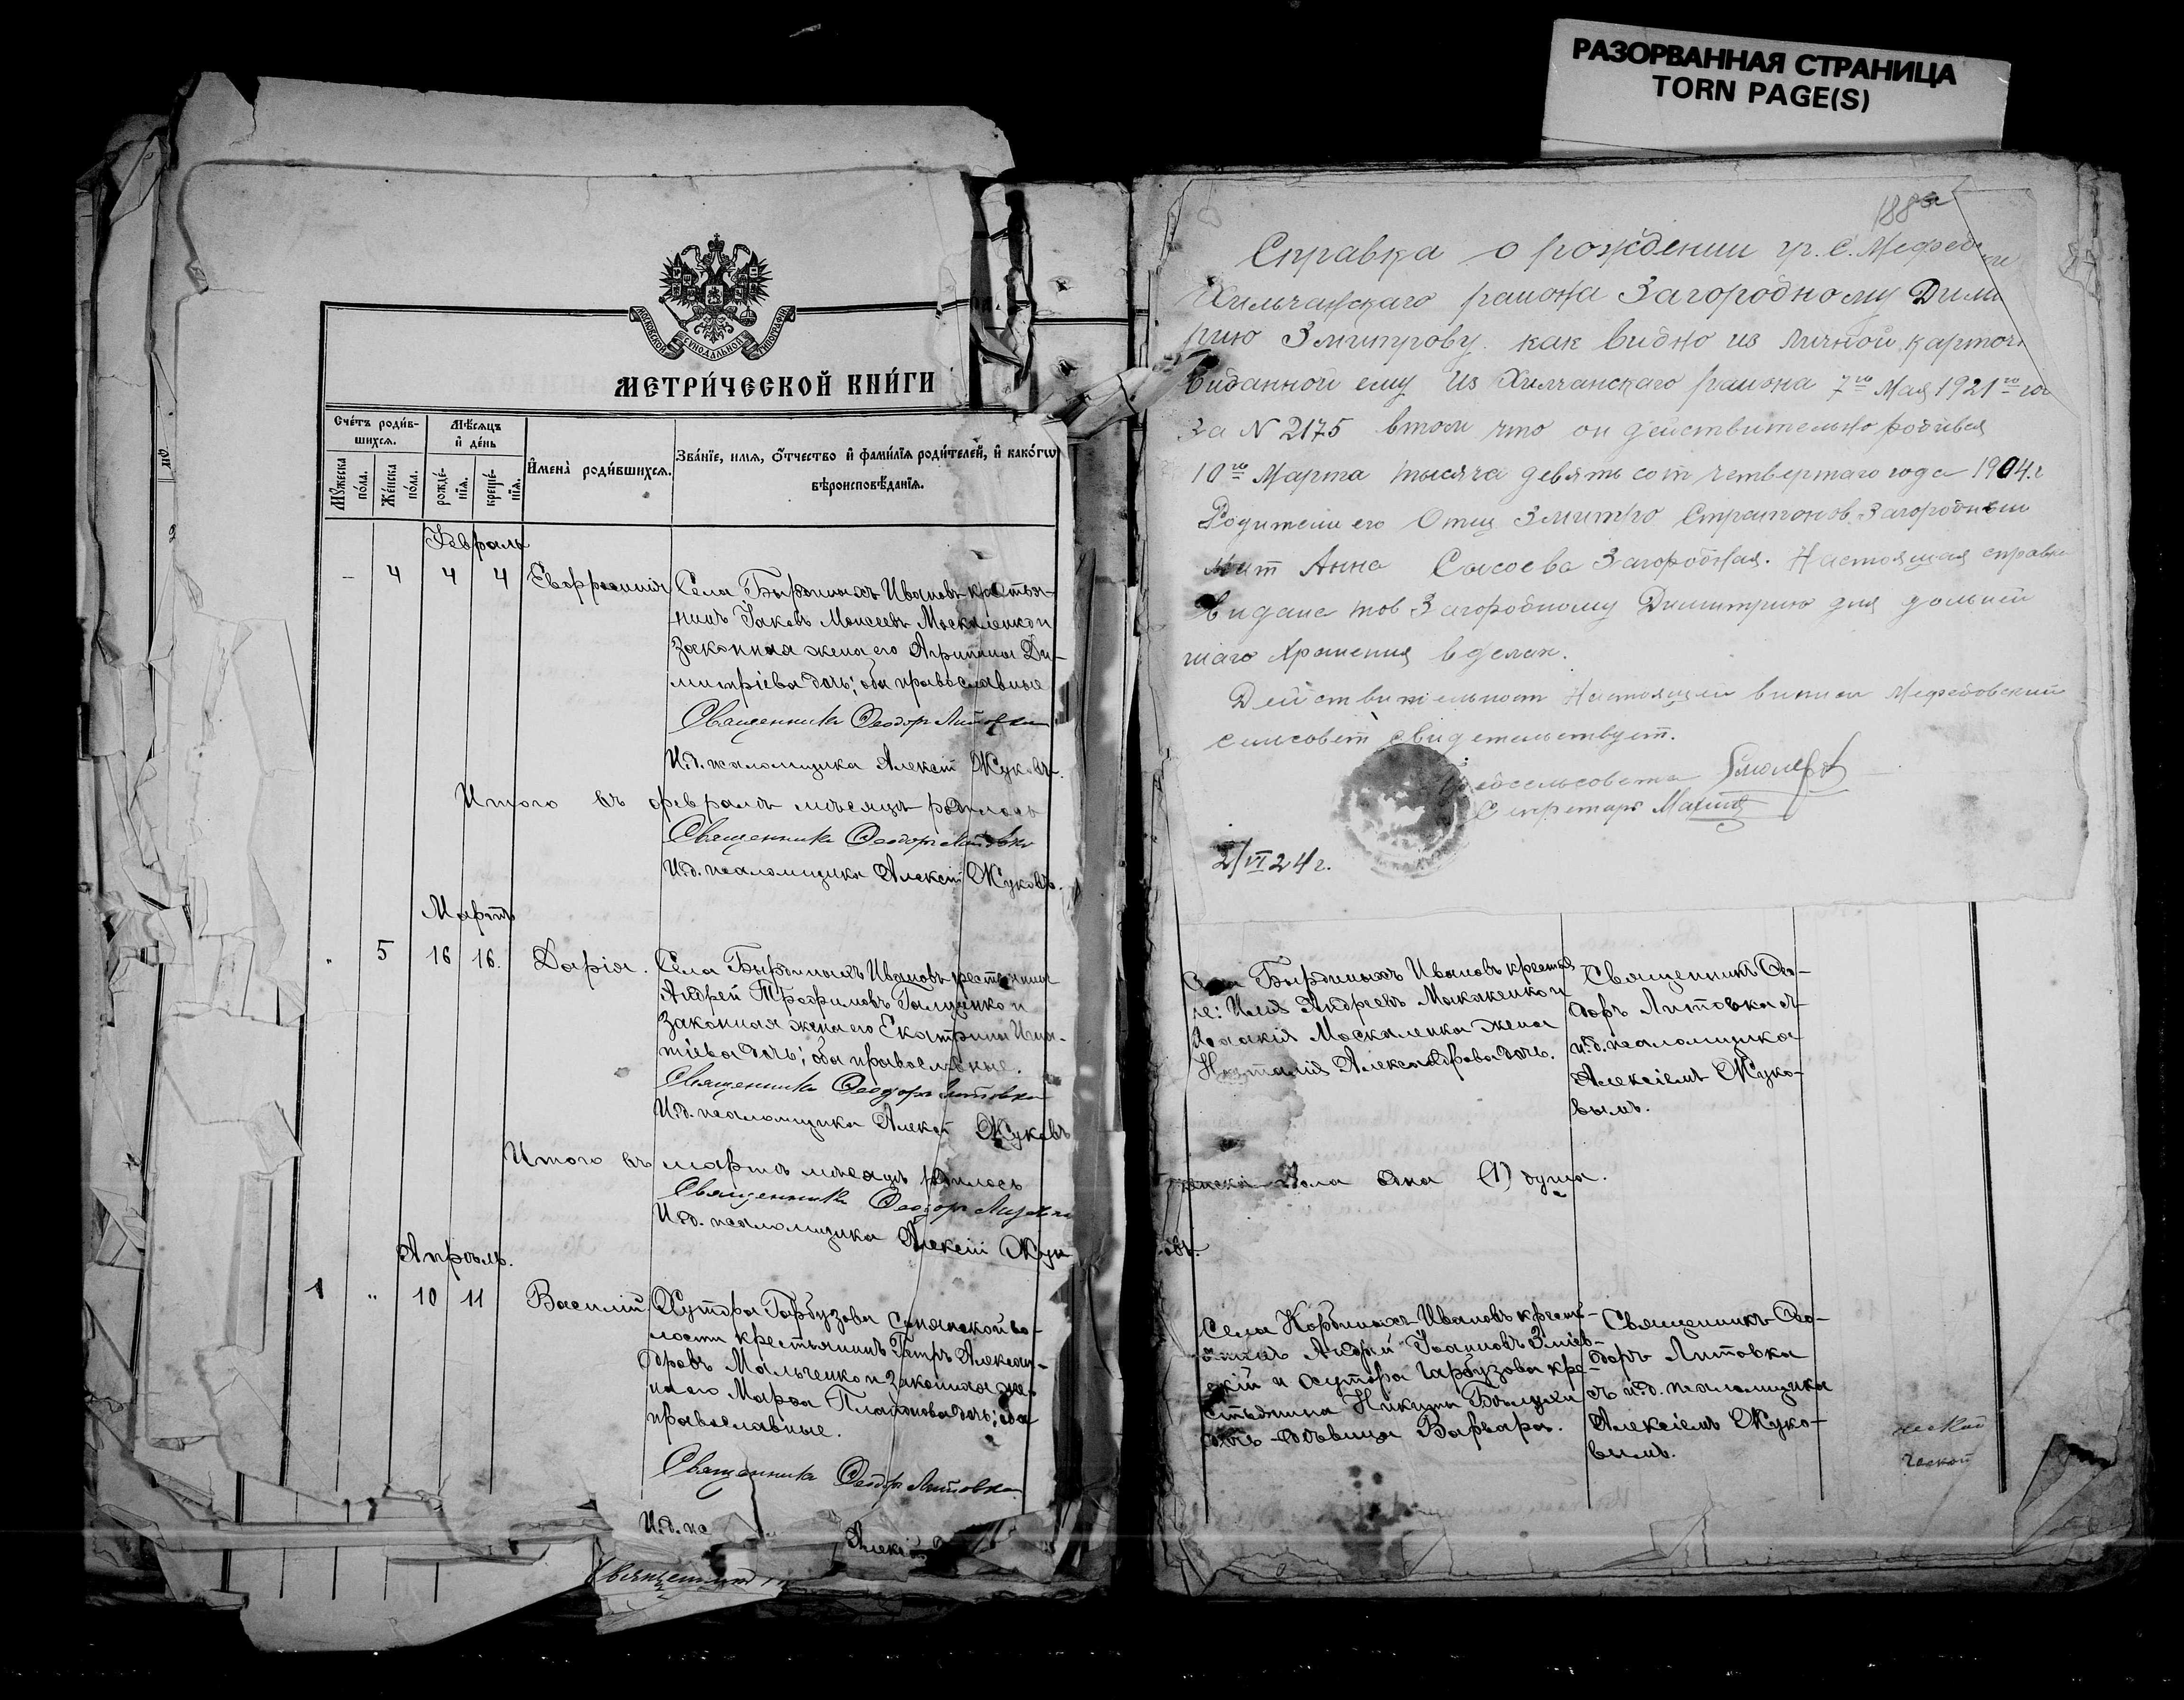 РАЗОРВАННАЯ СТРАНИЦА
TORN PAGE(S)
МОСКОВСКОЙ СУНОДАЛЬНОЙ ТИПОГРАФІИ
МЕТРИ́ЧЕСКОЙ КНИ́ГИ
Сче́тъ роди́в-
шихся.
Му́жеска по́ла.
Же́нска по́ла.
Мѣ́сяцъ
и҆ де́нь
рожде́-
нїя.
креще́-
нїя.
И҆мена̀ роди́вшихся.
Зва́нїе, имя, ѻ҆́тчество и҆ фами́лїя роди́телей, и҆ како́гѡ
вѣроисповѣ́данїя.
Февраль
- 4 4 4 Евфросинія
Села Бырдиныхъ Ивановъ крестья-
нинъ Іаковъ Моисеевъ Москаленко и
законная жена его Агрипина Ди-
митріева дочь; оба православные
Священникъ Ѳеодоръ Литовка
И.д. псаломщика Алексій Жуковъ.
Итого въ февралѣ мѣсяцѣ родилось
Священникъ Ѳеодоръ Литовка
И.д. псаломщика Алексій Жуковъ.
Мартъ
" 5 16 16. Дарія.
Села Бырдиныхъ Ивановъ крестьянинъ
Андрей Трофимовъ и
законная жена его Екатерина Игна-
тіева дочь; оба православные.
Священникъ Ѳеодоръ Литовка
И.д. псаломщика Алексій Жуковъ
Итого въ мартѣ мѣсяцѣ родилось
Священникъ Ѳеодоръ Литовка
И.д. псаломщика Алексій Жук
Апрѣль.
1 " 10 11 Василій
Хутора Гарбузова во-
лости крестьянинъ Петръ Алексан-
дровъ Мальченко и законная же-
на его Марфа Платонова дочь; оба
православные.
Священникъ Ѳеодоръ Литовка
И.д. пс Алексі
Священникъ
188а
Справка о рождении гр. с. Мефед
Хильчанскаго района Загородному Дими
рию Змитрову. как видно из личной карточ
виданной ему из Хилчанскаго района 7го Мая 1921го го
За N 2175 втом что он действительно родився
10го Марта тысяча девятьсот четвертаго года 1904.г
Родители его Отец Змитро Страпонов Загородний
Мат Анна Сысоева Загородная. Настоящая справка
видана тов Загородному Димитрию для дольней
шаго хранения вделах.
Действительност Настоящей виписи Мефедовский
сельсовет свидетельствует.
Предсельсовета
Секретарь
2/VI 24 г.
Села Бырдиныхъ Ивановъ крестья
не: Илія Андреевъ и
Іоаакія Москаленка жена
Наталія Александрова дочь.
Священникъ Ѳео-
доръ Литовка съ
и.д. псаломщика
Алексіемъ Жуко-
вымъ.
женска пола одна (1) душа.
овъ.
Села Кординыхъ Ивановъ крест-
Андрей Іоанновъ Зміев-
скій и хутора Гарбузова кре-
стьянина Никиты
дочь дѣвица Варвара.
Священникъ Ѳео-
доръ Литовка
съ и.д. псаломщика
Алексіемъ Жуко-
вымъ.
ческой